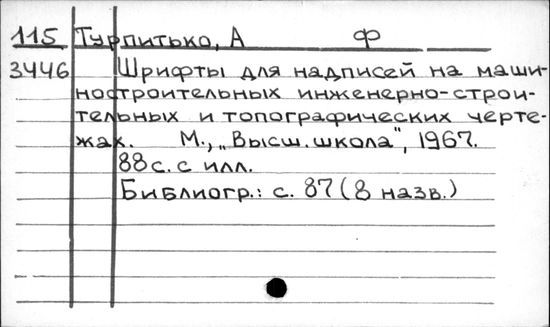 115 Турпитько, А Ф
3446 Шрифты для надписей на маши-
ностроительных инженерно-строи-
тельных и топографических черте-
жах. М., „Высш. школа", 1967.
88 с. с илл.
Библиогр.: с. 87 (8 назв.)